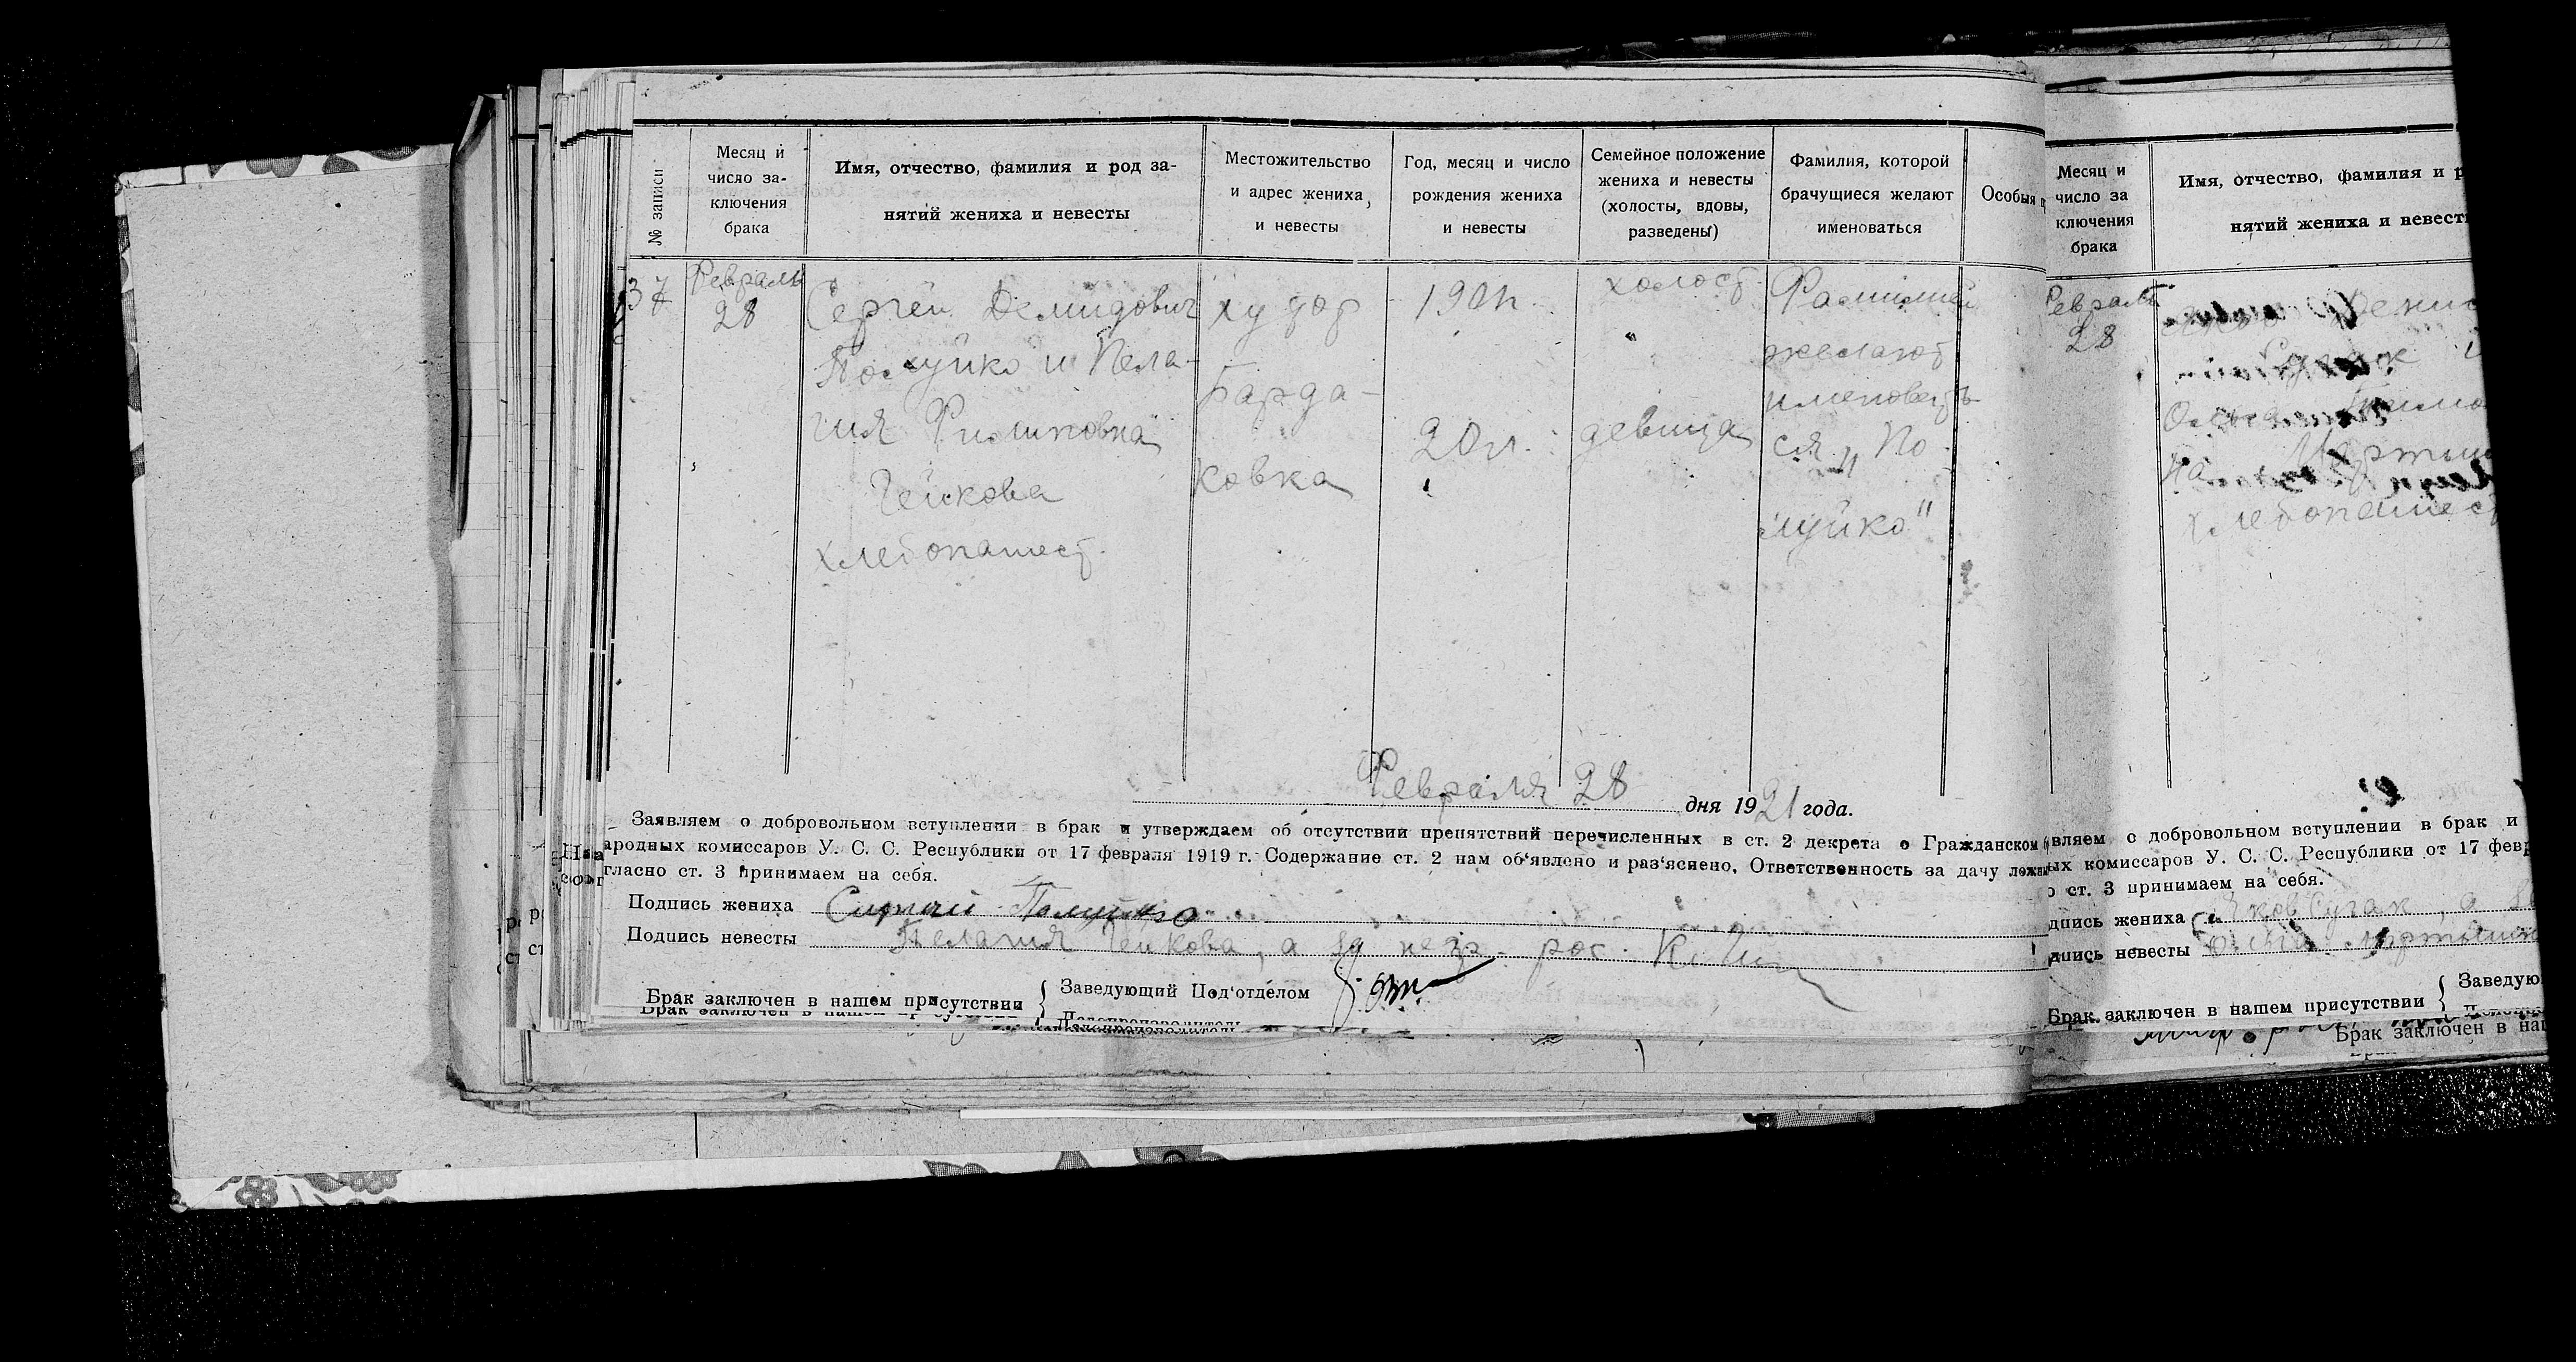 № записи
Месяц и
число за-
ключения
брака
Имя, отчество, фамилия и род за-
нятий жениха и невесты
Местожительство
и адрес жениха,
и невесты
Год, месяц и число
рождения жениха
и невесты
Семейное положение
жениха и невесты
(холосты, вдовы,
разведены)
Фамилия, которой
брачущиеся желают
именоваться
Особыя
37
Февраль
28
Сергей Демидович
Полуйко и Пела-
гия Филиповна
Гейкова
хлебопашест.
хутор
Барда-
ковка
19 л.
20 л.
холост
девица
Фамилией
желают
именовать
ся „По
луйко"
Февраля 28 дня 1921 года.
Заявляем о добровольном вступлении в брак и утверждаем об отсутствии препятствий перечисленных в ст. 2 декрета о Гражданском
ародных комиссаров У. С. С. Республики от 17 февраля 1919 г. Содержание ст. 2 нам об'явлено и раз'яснено. Ответственность за дачу ложн
гласно ст. 3 принимаем на себя.
Подпись жениха Сергей Полуйко
Подпись невесты Пелагия Гейкова, а за негр. рос.
Брак заключен в нашем присутствии { Заведующий Под'отделом
Делопроизводитель
Месяц и
число за
ключения
брака
Имя, отчество, фамилия и р
нятий жениха и невест
Февраль
28
Денис
Сугак и
Ольга
на Мартын
хлебопашест
вляем о добровольном вступлении в брак и
ых комиссаров У. С. С. Республики от 17 февр
о ст. 3 принимаем на себя.
дпись жениха Яков Сугак, а
дпись невесты Ольга Мартын
Брак заключен в нашем присутствии { Заведую
Брак заключен в наш